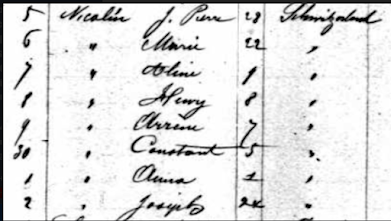 5 Nicolin J. Pierre 28 Schwitzerland
6 " Marie 22 "
7 " Aline 9 "
8 " Henry 8 "
9 " 7 "
30 " Constant 5 "
1 " Anna 1 "
2 " Joseph 24 "